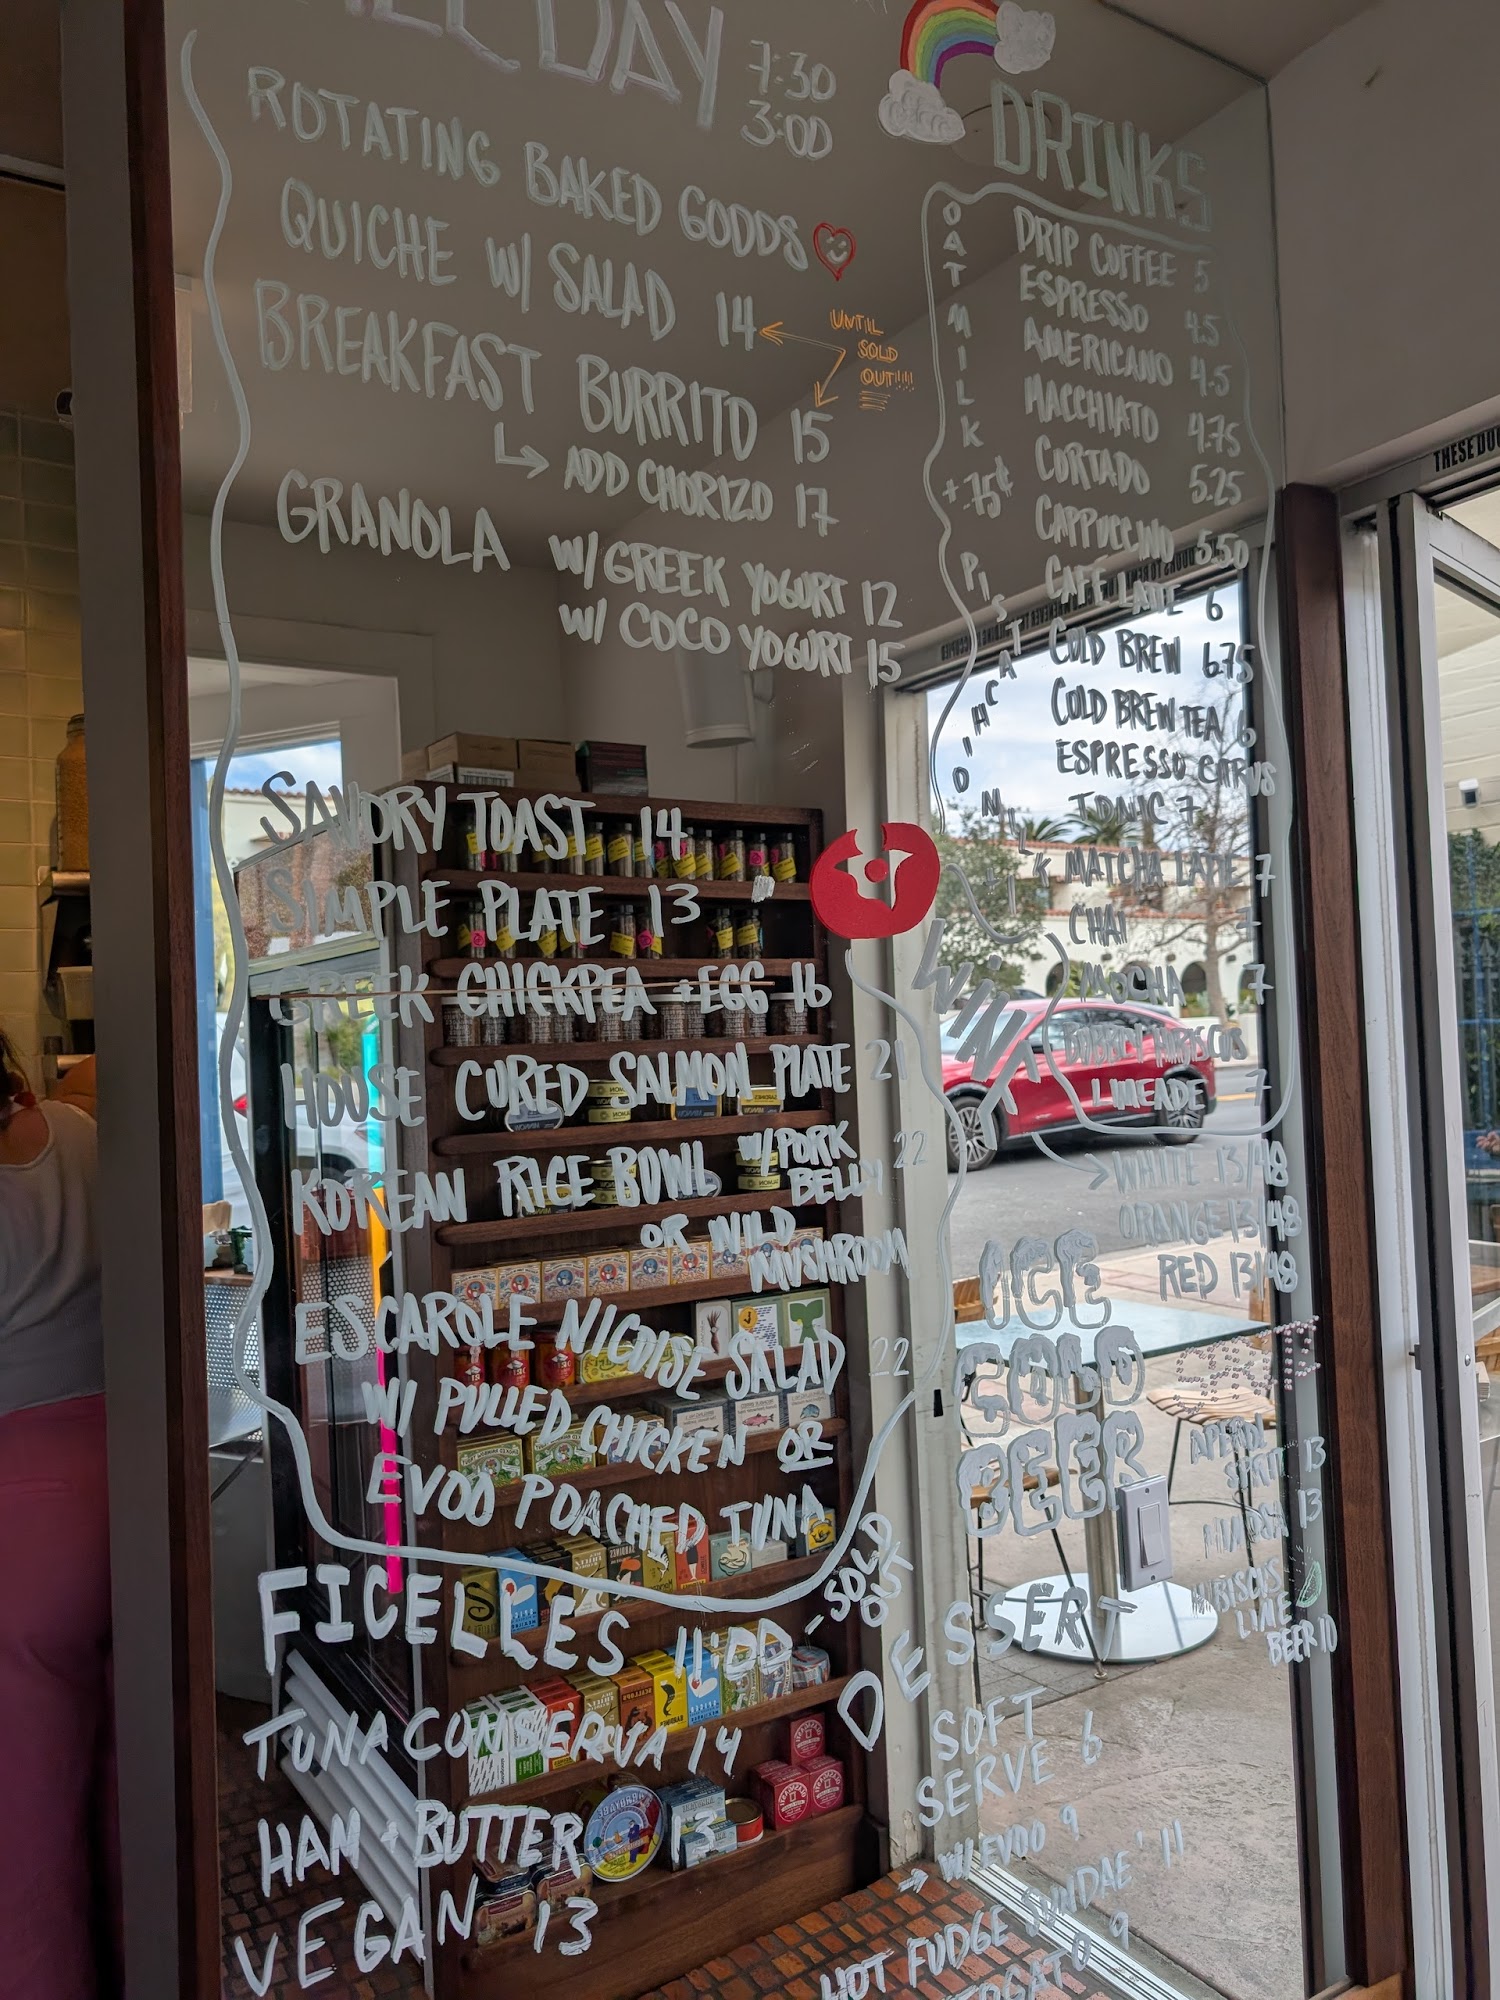 ALL DAY
7:30
3:00
ROTATING BAKED GOODS
QUICHE W/ SALAD 14
UNTIL
SOLD
OUT!!!!
BREAKFAST BURRITO 15
ADD CHORIZO 17
GRANOLA W/ GREEK YOGURT 12
W/ COCO YOGURT 15
SAVORY TOAST 14
SIMPLE PLATE 13
GREEK CHICKPEA + EGG 16
HOUSE CURED SALMON PLATE 21
KOREAN RICE BOWL W/ PORK BELLY 22
OR WILD
MUSHROOM
ESCAROLE NICOISE SALAD 22
W/ PULLED CHICKEN OR
EVOO POACHED TUNA
FICELLES 11:00 - SOLD OUT
TUNA CONSERVA 14
HAM + BUTTER 13
VEGAN 13
DRINKS
OAT MILK + .75¢
PISTACHIO MILK +1
DRIP COFFEE 5
ESPRESSO 4.5
AMERICANO 4.5
MACCHIATO 4.75
CORTADO 5.25
CAPPUCCINO 5.50
CAFE LATTE 6
COLD BREW 6.75
COLD BREW TEA 6
ESPRESSO CITRUS
TONIC 7
MATCHA LATTE 7
CHAI 7
MOCHA 7
HIBISCUS
LIMEADE 7
WINE
WHITE 13/48
ORANGE 13/48
RED 13/48
ICE
COLD
BEER
APEROL
SPRITZ 13
MIMOSA 13
HIBISCUS
LIME
BEER 10
DESSERT
SOFT
SERVE 6
W/ EVOO 9
HOT FUDGE SUNDAE 11
9
THESE DOO